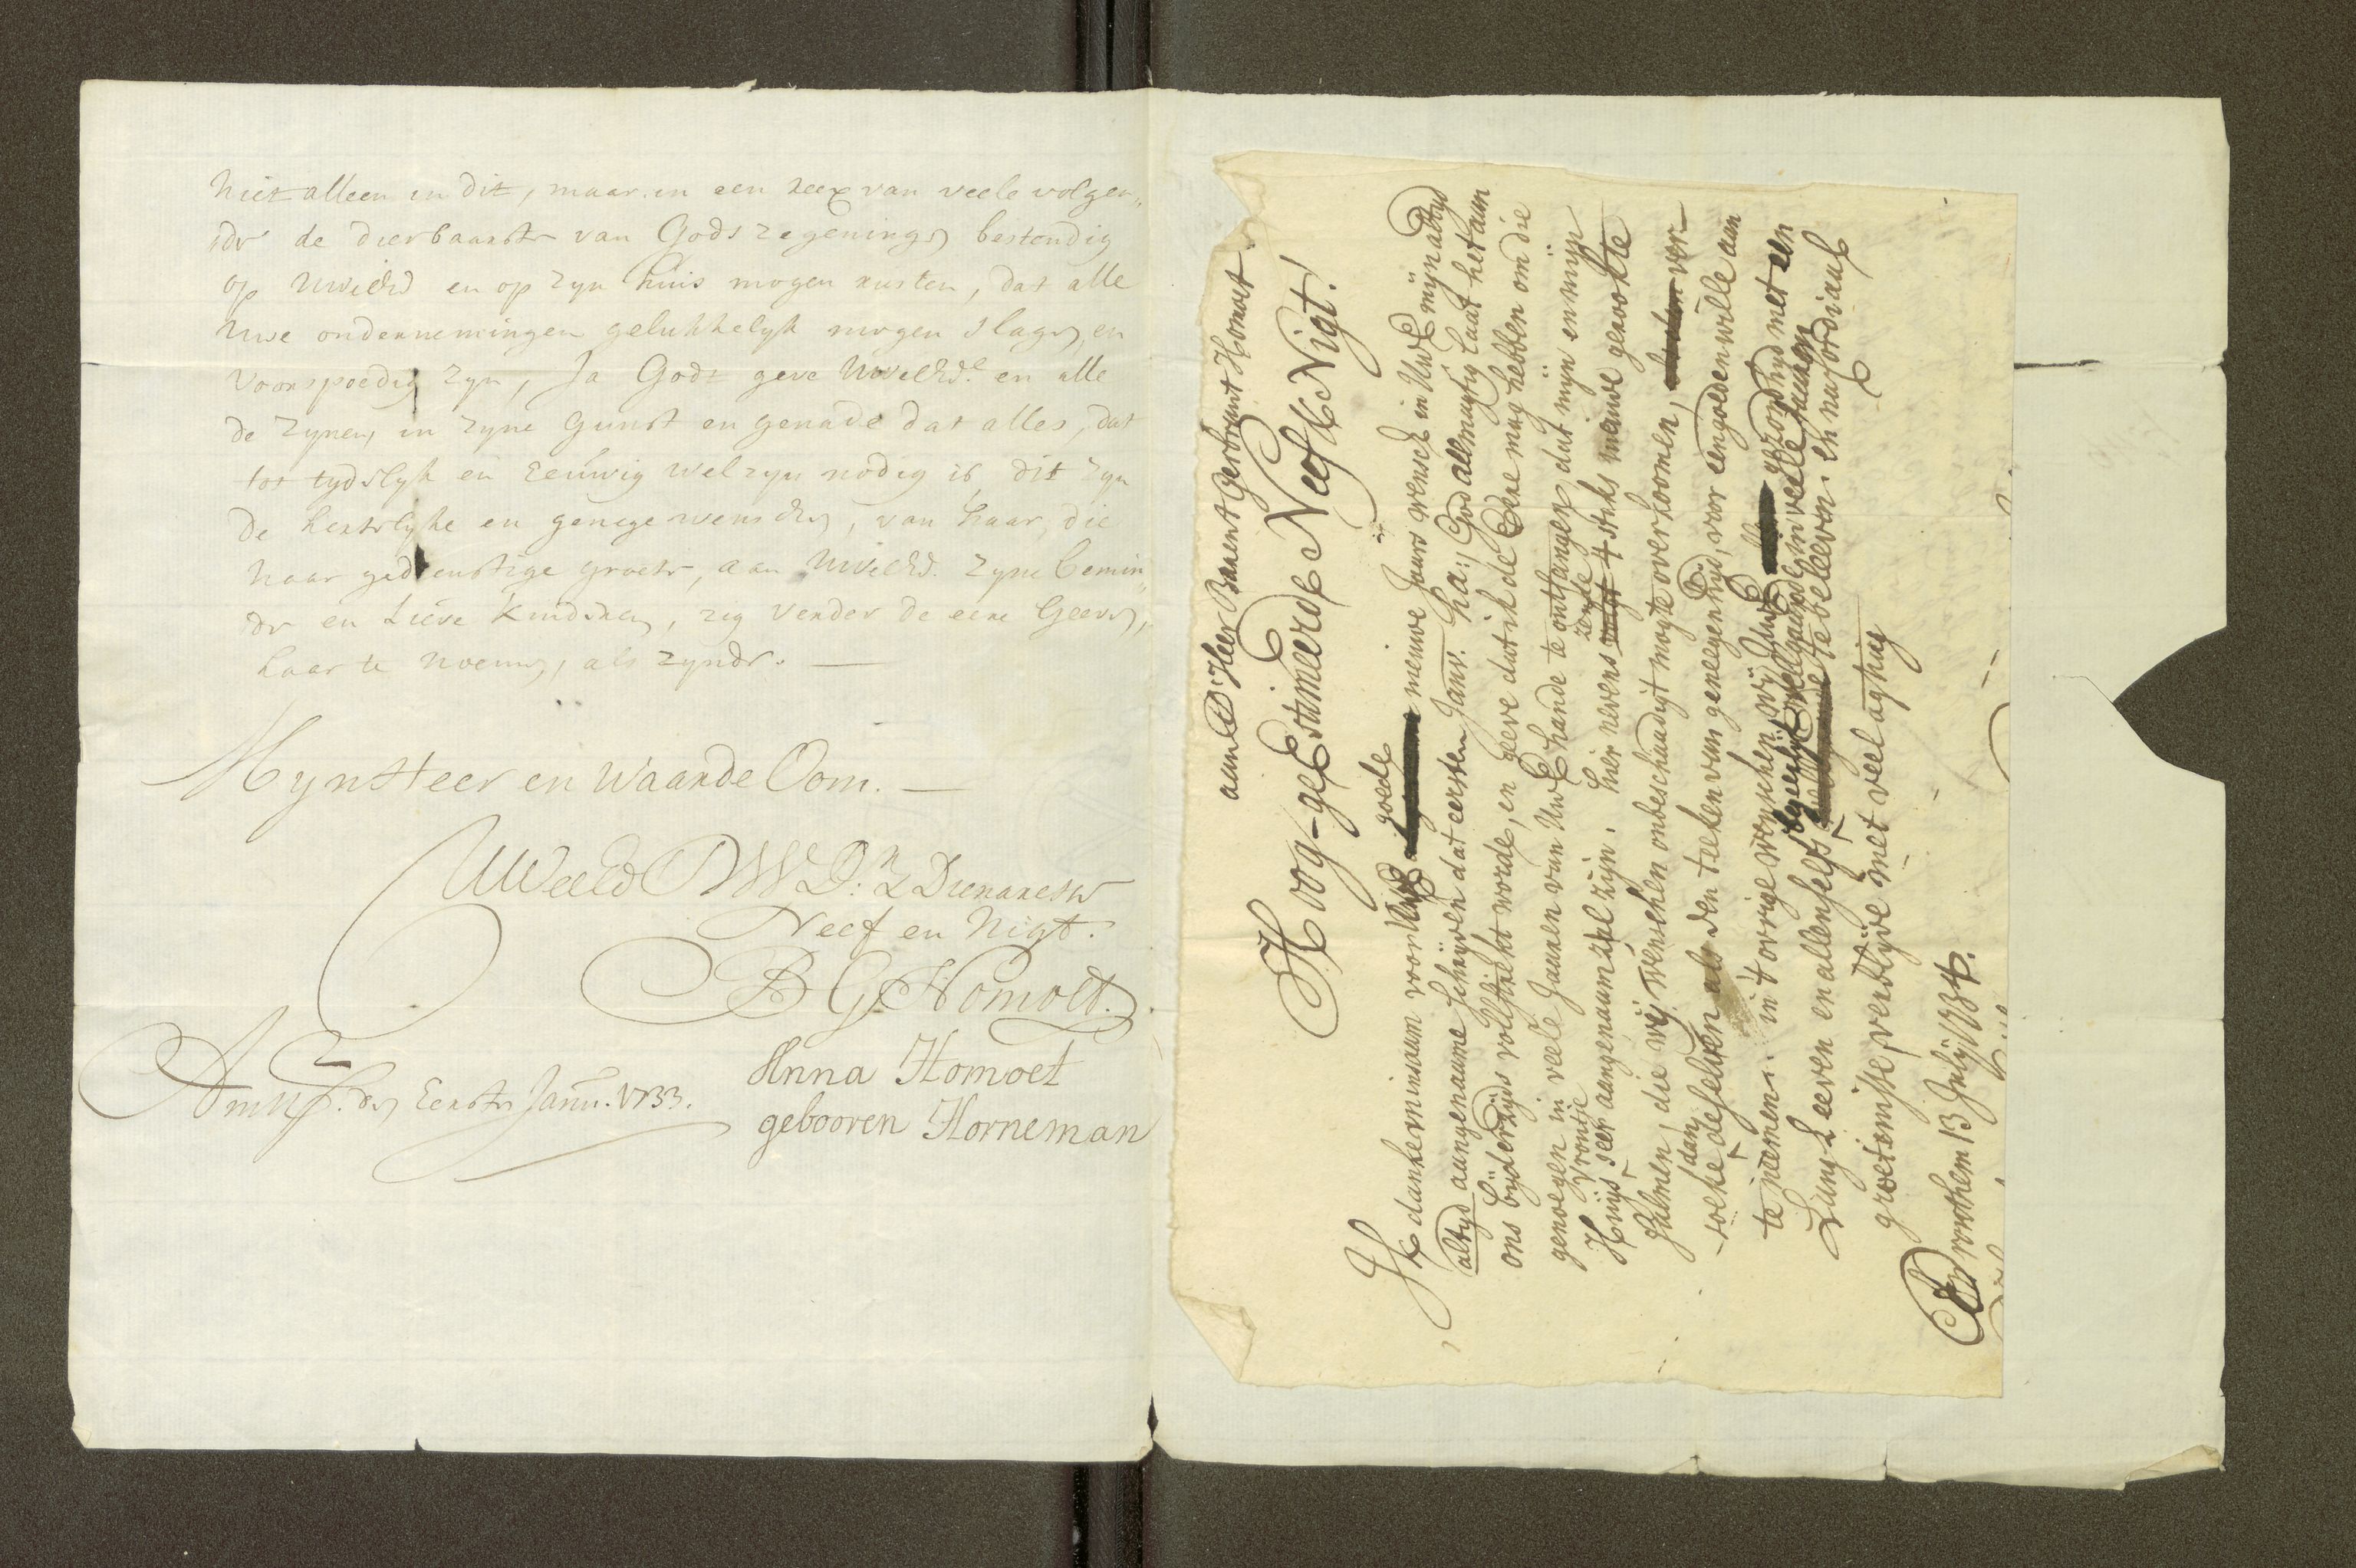 niet alleen in dit, maar in een reex van veele volgen„
de dierbaarste van Gods zegeninge bestendig
op UWelEd en op zyn huis mogen rusten, dat alle
uwe ondernemingen gelukkelyk mogen slagen, en
voorspoedig zyn, Ja Godt geve UWelEd.e en alle
de zynen, in zyne gunst en genade dat alles, dat
tot tydslyk en Eeuwig welzyn nodig is, dit zyn
de hertelyke en genege wenschen, van haar, die
haar gedienstige groete, aan UWelEd. zyne bemin„
de en Lieve kindren, zig verder de eere Geeven,
haar te noemen, als zynde. —
Myn Heer en Waarde Oom. —
UWelEd DW D:n Dienaresse
Neef en Nigt.
B G Homoet.
Anna Homoet
gebooren Horneman
Amst. den Eersten Janu. 1733.
aan D'Heer Barent Gerbrant Homoet
Hoog-geEstimeerde Neef & Nigt!
Ik danke minsaam voor UwE goede nieuwe Jaars wensch in UwE mijn altyd
altyd aangenaame schrijven dat eersten Janv. ha: God allmagtig laat het aan
ons bijderzijds vollstrekt worde, en geeve dat ik de Eere mag hebben om die
genoegen in veele Jaaren van UwE hande te ontfangen, dat mijn en mijn
Huijs vrouwe seer aangenaam zal zijn. hier nevens zende 4 stuks nieuwe gerookte
Zalmen, die wij wenschen onbeschaadigt mogte overkoomen, ver-
-soeke dan deselven als den teeken van geneegenhijd, voor een goeden wille aan
te neemen. in't ovrige wenschen wij UwE gezondhijd met een
Lang Leeven en allenselfs begeerlyk welgaande in veele Jaaren te beleeven. en na Cordiaale
groetenisse verblijve met veel agting
Dronthem 13 Julij 1734.